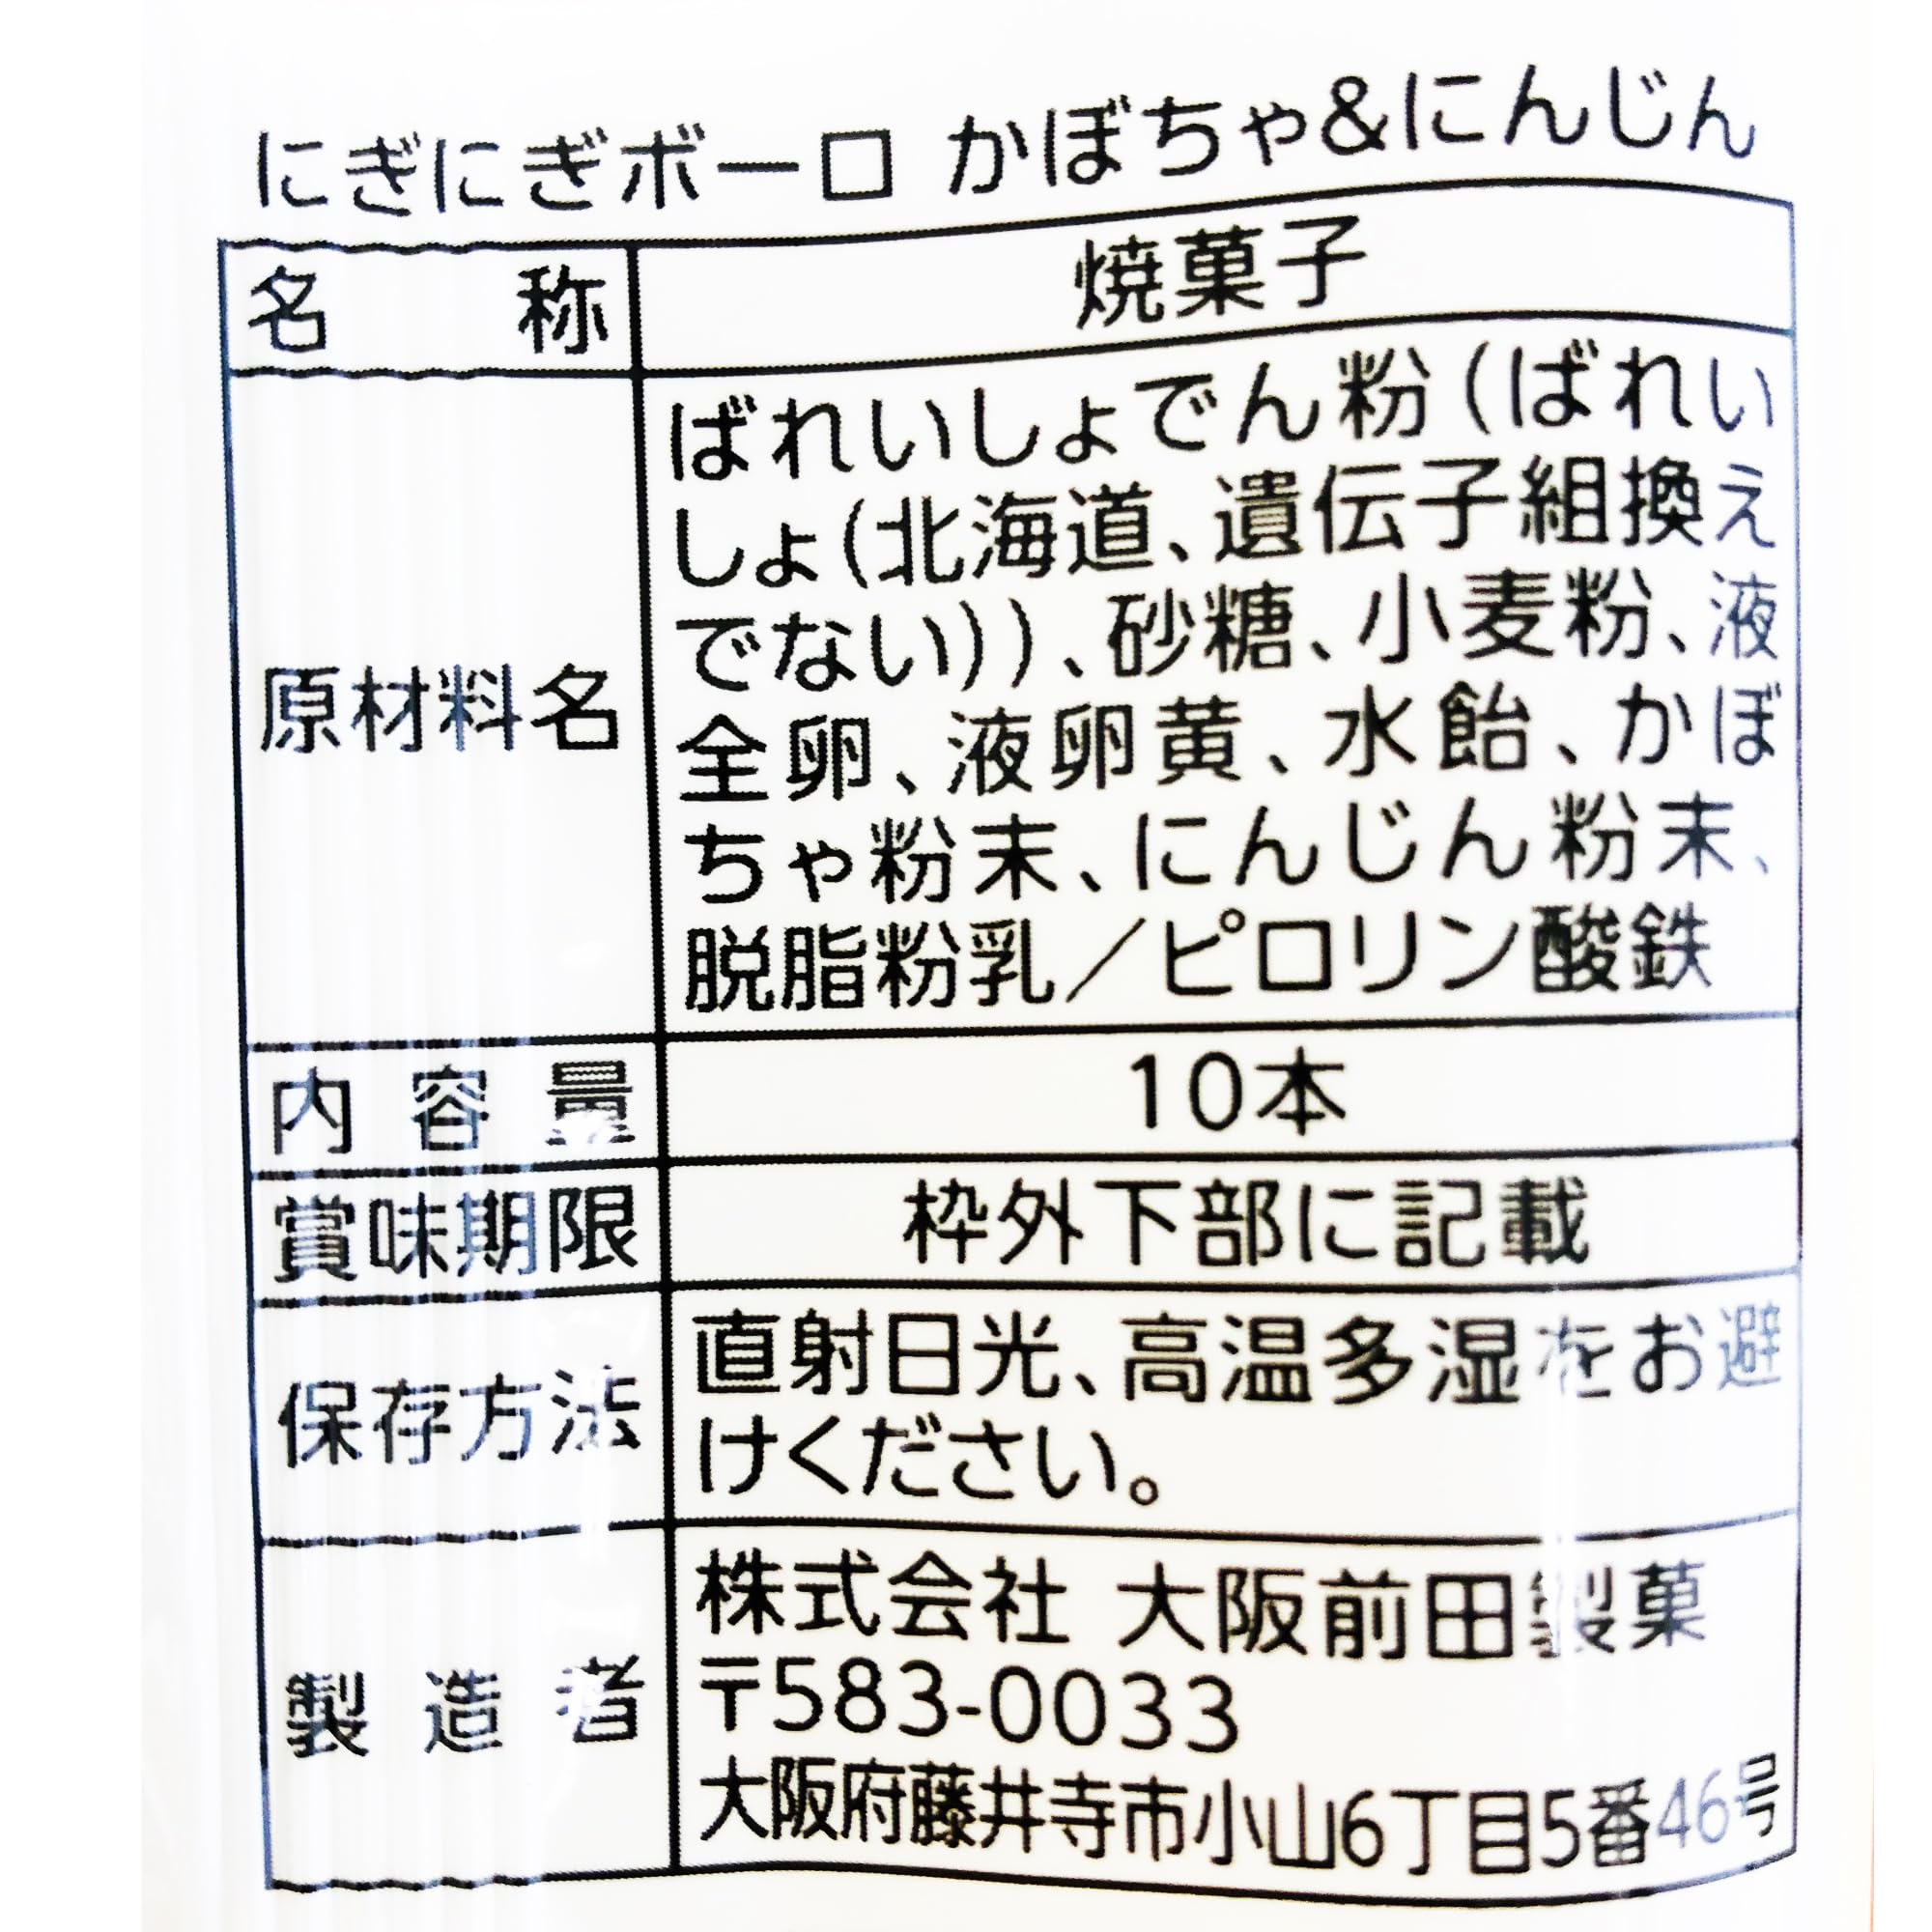 にぎにぎボーロ かぼちゃ&にんじん
名称 焼菓子
原材料名
ばれいしょでん粉(ばれい
しょ(北海道、遺伝子組換え
でない))、砂糖、小麦粉、液
全卵、液卵黄、水飴、かぼ
ちゃ粉末、にんじん粉末、
脱脂粉乳／ピロリン酸鉄
内容量 10本
賞味期限 枠外下部に記載
保存方法
直射日光、高温多湿をお避
けください。
製造者
株式会社 大阪前田製菓
〒583-0033
大阪府藤井寺市小山6丁目5番46号